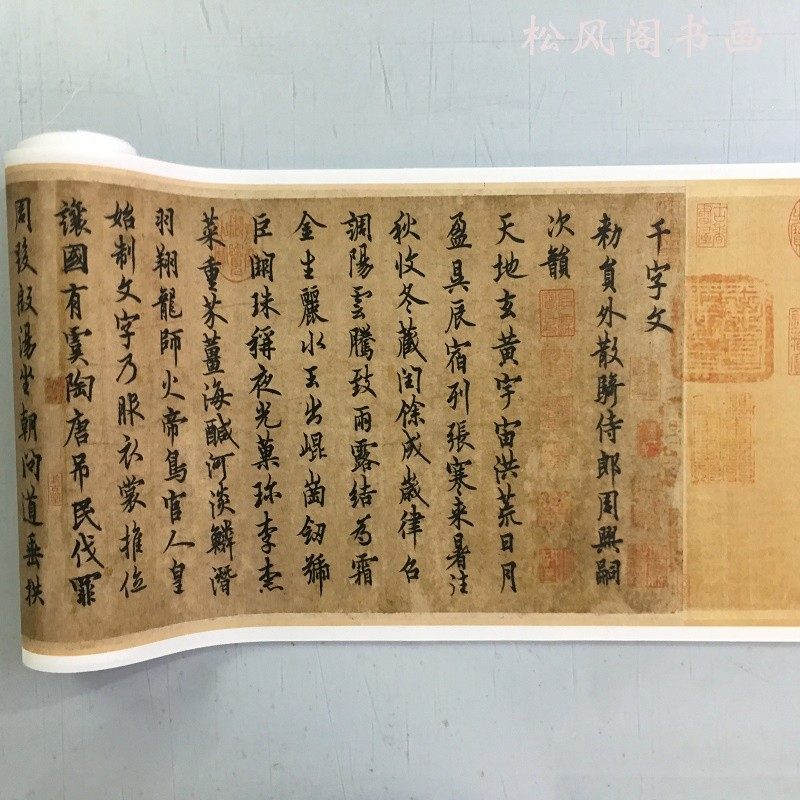 松风阁书画
千字文
勅員外散騎侍郎周興嗣
次韻
天地玄黃宇宙洪荒日月
盈昃辰宿列張寒来暑往
秋收冬藏閏餘成歲律召
調陽雲騰致雨露結為霜
金生麗水玉出崐崗劒號
巨闕珠稱夜光菓珎李柰
菜重芥薑海醎河淡鱗潛
羽翔龍師火帝鳥官人皇
始制文字乃服衣裳推位
讓國有虞陶唐吊民伐罪
周發殷湯坐朝問道垂拱